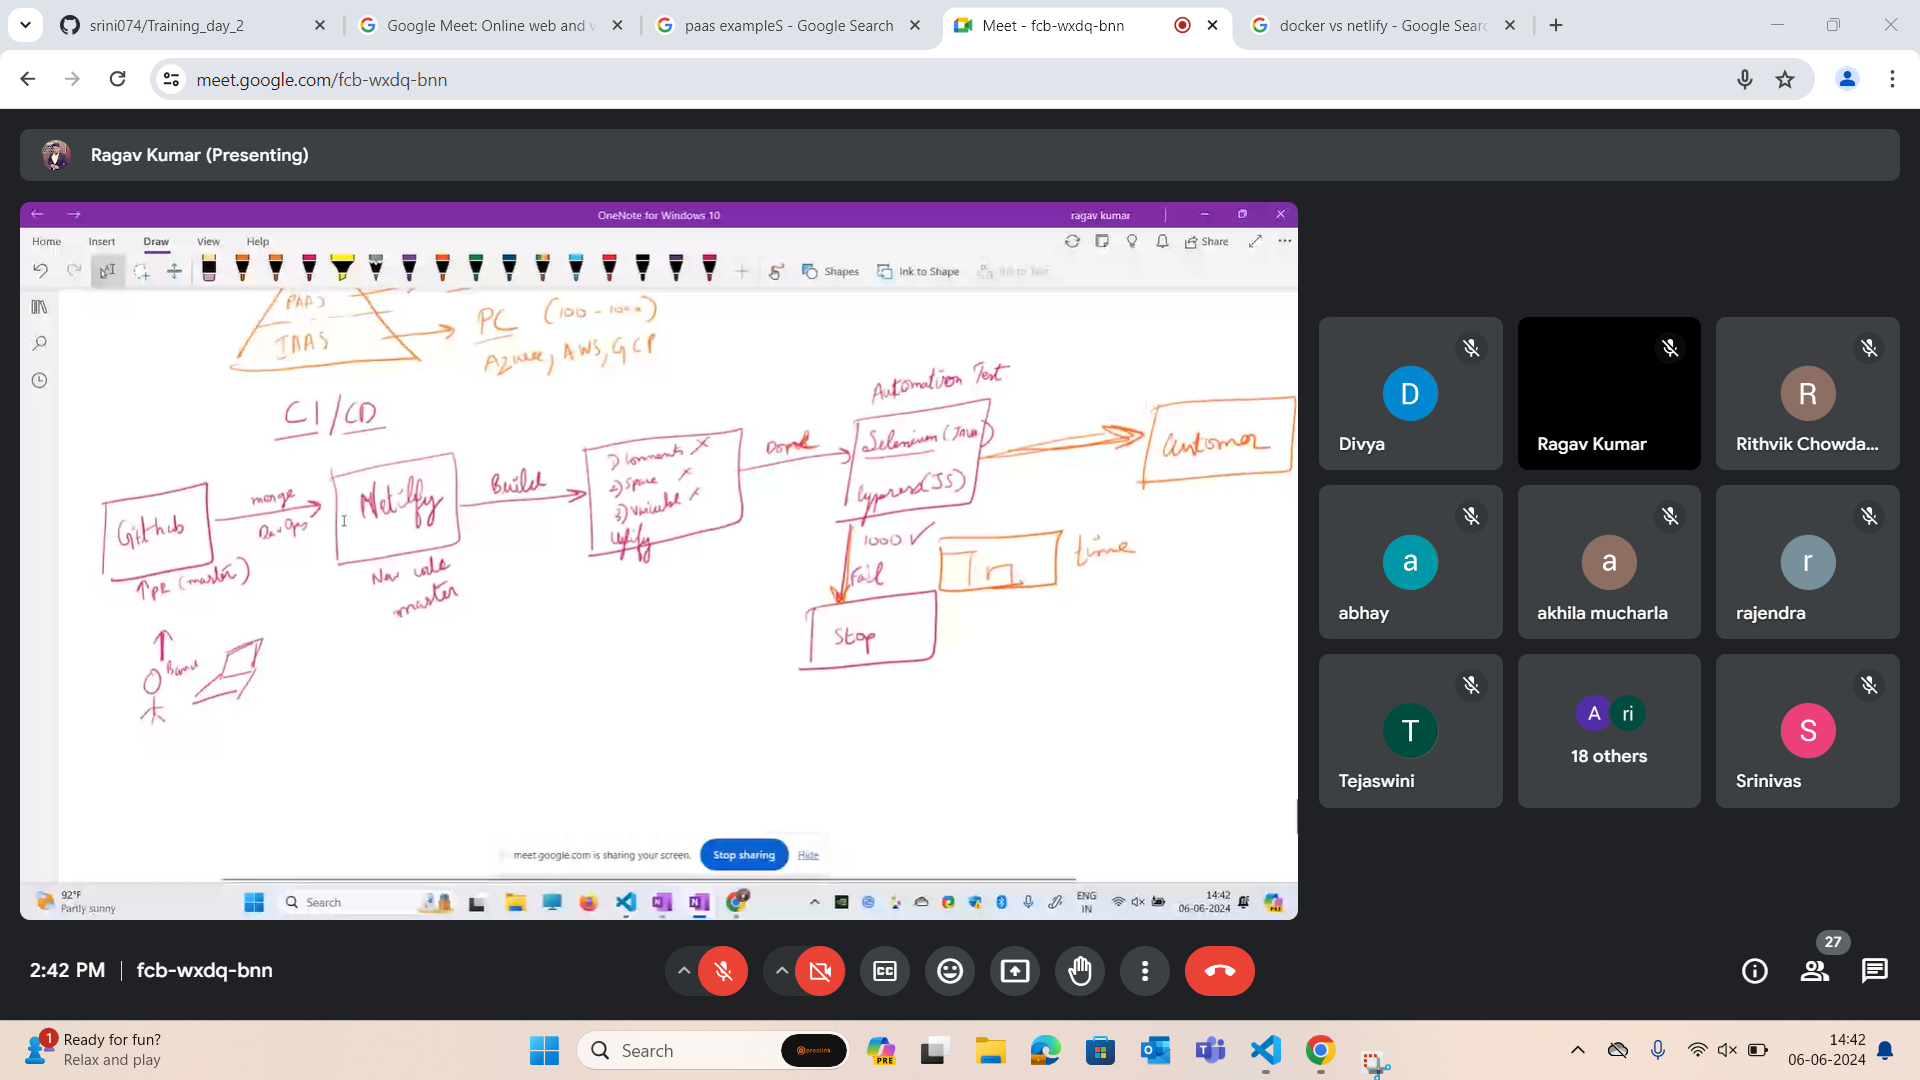 srini074/Training_day_2
Google Meet: Online web and v
paas exampleS - Google Search
Meet - fcb-wxdq-bnn
docker vs netlify - Google Sear
meet.google.com/fcb-wxdq-bnn
Ragav Kumar (Presenting)
OneNote for Windows 10
ragav kumar
Home
Insert
Draw
View
Help
Share
Shapes
Ink to Shape
PAAS
IAAS
PC (100 - 1000)
Azure, AWS, GCP
CI/CD
Automation Test
Github
merge
DevOps
Netlify
Build
1) Comments X
2) Space X
3) Variable X
Uglify
Done
Selenium (Java)
Cypress (JS)
Customer
PR (master)
New code
master
1000 ✓
Fail
time
Stop
meet.google.com is sharing your screen.
Stop sharing
Hide
92°F
Partly sunny
Search
ENG
IN
14:42
06-06-2024
Divya
Ragav Kumar
R
Rithvik Chowda...
D
a
abhay
a
akhila mucharla
r
rajendra
T
Tejaswini
A
ri
18 others
S
Srinivas
2:42 PM
fcb-wxdq-bnn
27
1
Ready for fun?
Relax and play
Search
prolink
PRE
14:42
06-06-2024